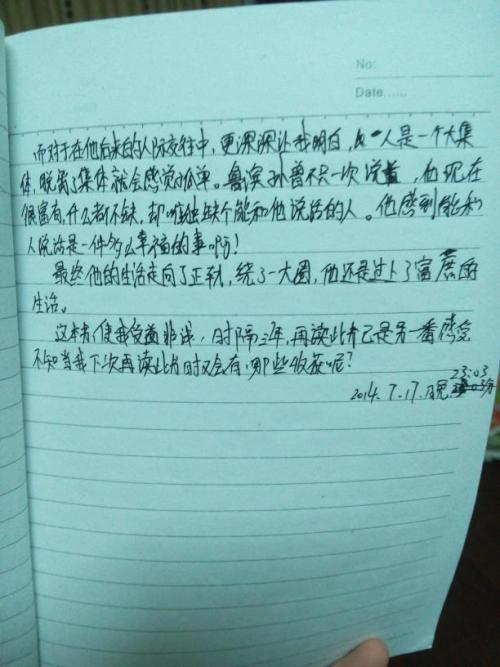 No:
Date......
而对于在他后来的人际交往中，更深深让我明白，人是一个大集
体，脱离了集体就会感觉孤单。鲁滨孙曾不只一次说道，他现在
很富有什么都不缺，却唯独缺个能和他说话的人。他感到能和
人说话是一件多么幸福的事啊！
最终他的生活走向了正轨，绕了一大圈，他还是过上了富庶的
生活。
这本书使我受益非浅，时隔三年，再读此书已是另一番感受
不知当我下次再读此书时又会有哪些收获呢？
23:03
2014.7.17.晚